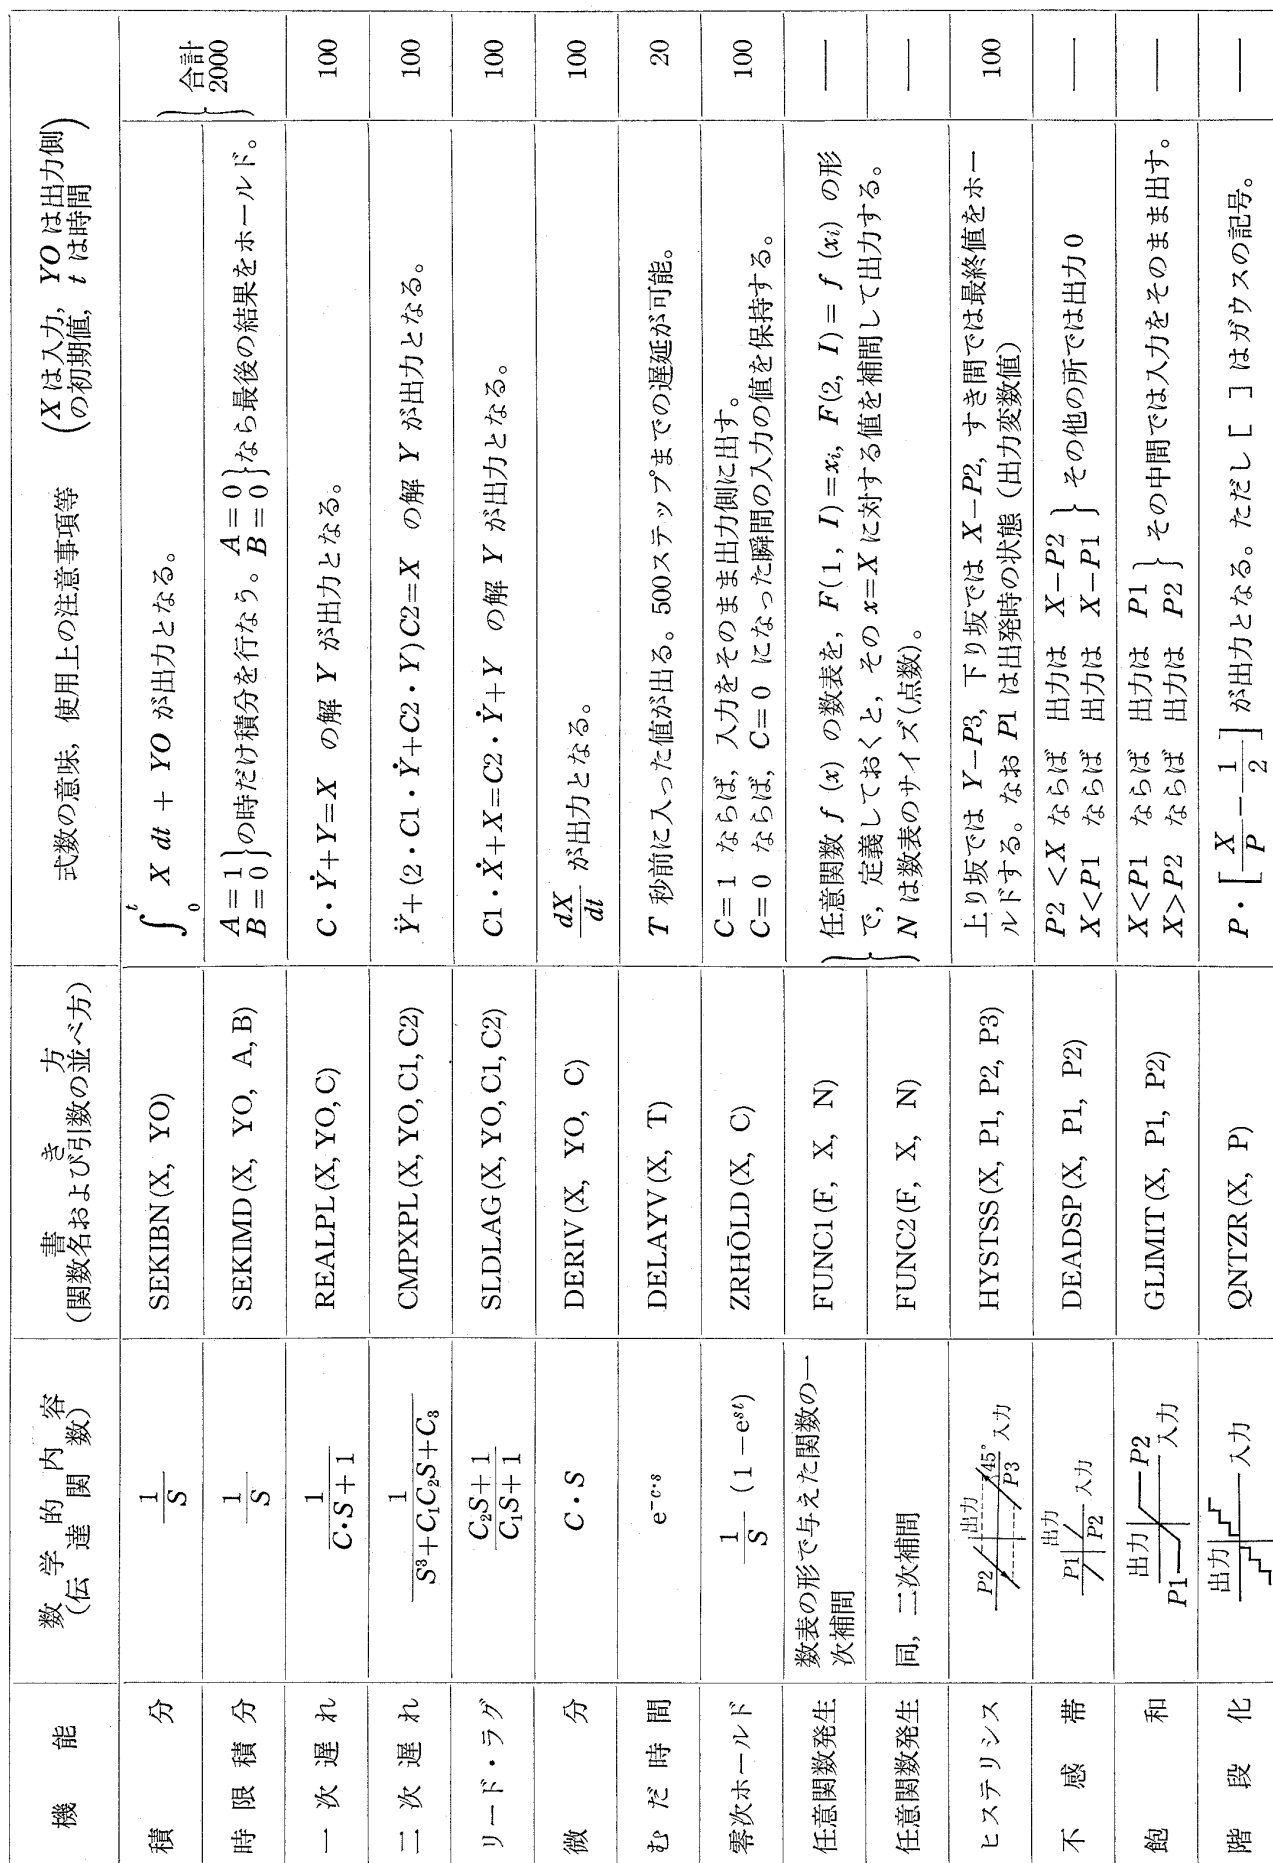 機能
数学的内容
(伝達関数)
書き方
(関数名および引数の並べ方)
式数の意味, 使用上の注意事項等
(Xは入力, YOは出力側
の初期値, tは時間)
積分
1/S
SEKIBN(X, YO)
∫₀ᵗ X dt + YO が出力となる。
合計
2000
時限積分
1/S
SEKIMD(X, YO, A, B)
A=1
B=0 }の時だけ積分を行なう。A=0
B=0 }なら最後の結果をホールド。
一次遅れ
1/(C・S+1)
REALPL(X, YO, C)
C・Ẏ+Y=X の解 Y が出力となる。
100
二次遅れ
1/(S³+C₁C₂S+C₃)
CMPXPL(X, YO, C1, C2)
Ÿ+(2・C1・Ẏ+C2・Y)C2=X の解 Y が出力となる。
100
リード・ラグ
(C₂S+1)/(C₁S+1)
SLDLAG(X, YO, C1, C2)
C1・Ẋ+X=C2・Ẏ+Y の解 Y が出力となる。
100
微分
C・S
DERIV(X, YO, C)
dX/dt が出力となる。
100
むだ時間
e⁻ᶜ·ˢ
DELAYV(X, T)
T 秒前に入った値が出る。500ステップまでの遅延が可能。
20
零次ホールド
1/S (1−eˢᵗ)
ZRHŌLD(X, C)
C=1 ならば, 入力をそのまま出力側に出す。
C=0 ならば, C=0 になった瞬間の入力の値を保持する。
100
任意関数発生
数表の形で与えた関数の一
次補間
FUNC1(F, X, N)
任意関数 f (x) の数表を, F(1, I)=xi, F(2, I)=f (xi) の形
で, 定義しておくと, その x=X に対する値を補間して出力する。
N は数表のサイズ(点数)。
—
任意関数発生
同, 二次補間
FUNC2(F, X, N)
—
ヒステリシス
出力
P2
45°
P3
入力
HYSTSS(X, P1, P2, P3)
上り坂では Y−P3, 下り坂では X−P2, すき間では最終値をホー
ルドする。なお P1 は出発時の状態 (出力変数値)
100
不感帯
出力
P1
P2
入力
DEADSP(X, P1, P2)
P2<X ならば 出力は X−P2
X<P1 ならば 出力は X−P1 } その他の所では出力 0
—
飽和
出力
P2
P1
入力
GLIMIT(X, P1, P2)
X<P1 ならば 出力は P1
X>P2 ならば 出力は P2 } その中間では入力をそのまま出す。
—
階段化
出力
入力
QNTZR(X, P)
P・[X/P−1/2] が出力となる。ただし [ ] はガウスの記号。
—